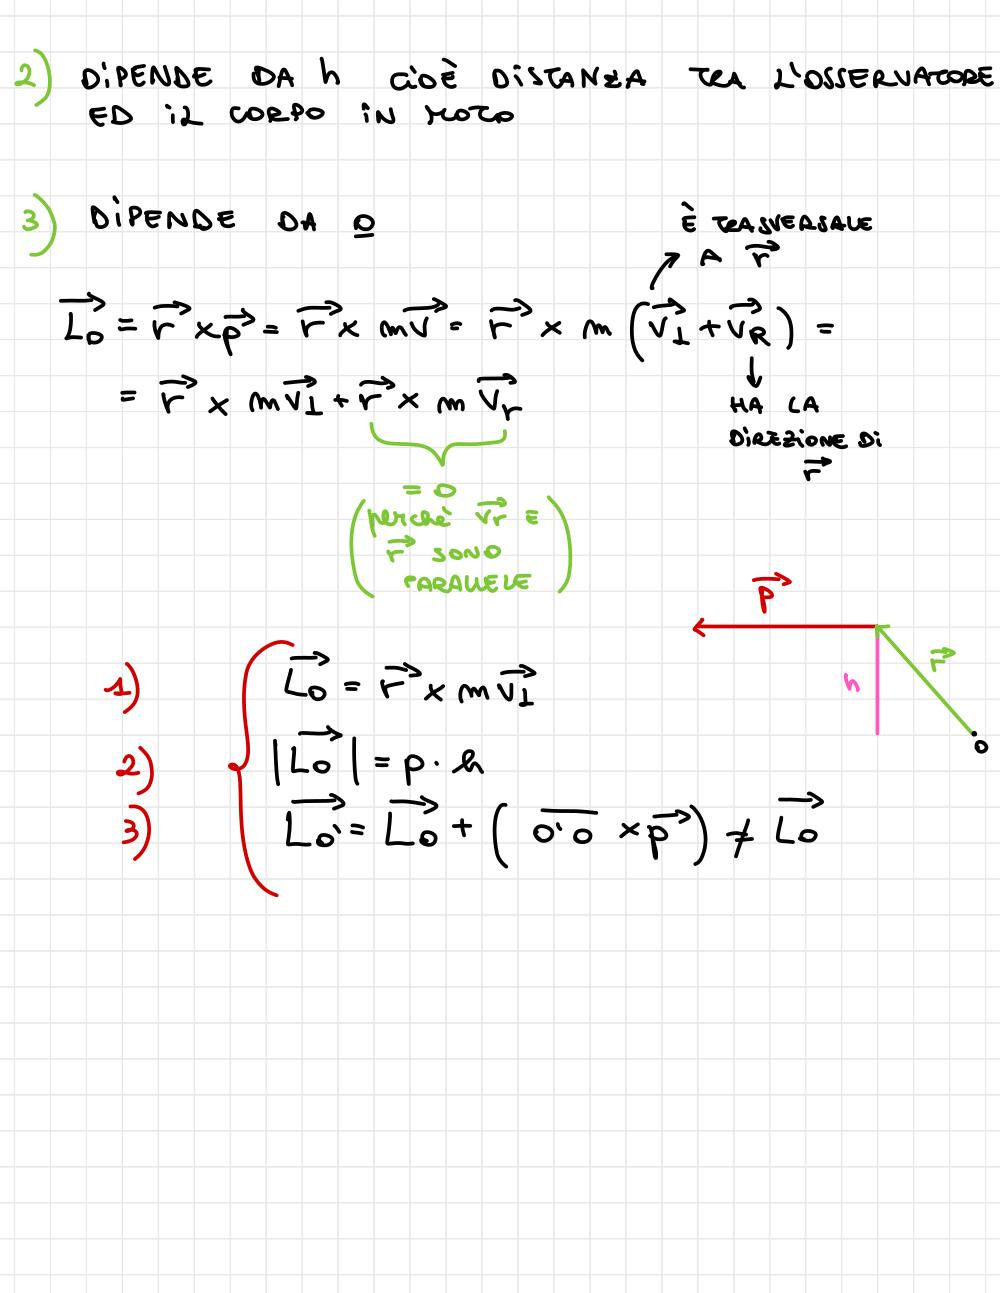 2) DIPENDE DA h CIOÈ DISTANZA TRA L'OSSERVATORE
ED IL CORPO IN MOTO
3) DIPENDE DA O
È TRASVERSALE
A r⃗
L⃗o = r⃗ × p⃗ = r⃗ × mv⃗ = r⃗ × m (v⃗⊥ + v⃗R) =
= r⃗ × mv⃗⊥ + r⃗ × m v⃗r
HA LA
DIREZIONE DI
r⃗
= 0
(perché v⃗r E
r⃗ SONO
PARALLELE)
p⃗
r⃗
h
O
1) L⃗o = r⃗ × mv⃗⊥
2) |L⃗o| = p · h
3) L⃗o' = L⃗o + (O'O × p⃗) ≠ L⃗o